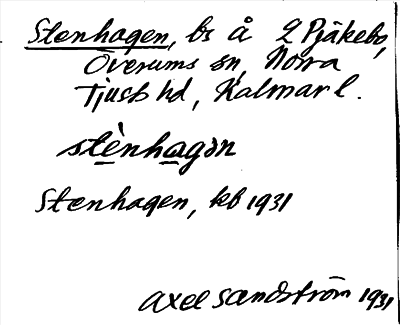 Stenhagen, bs å L Pjäkebo,
Överums sn, Norra
Tjust hd, Kalmar l.
stènhagən
Stenhagen, kb 1931
Axel Sandström 1931